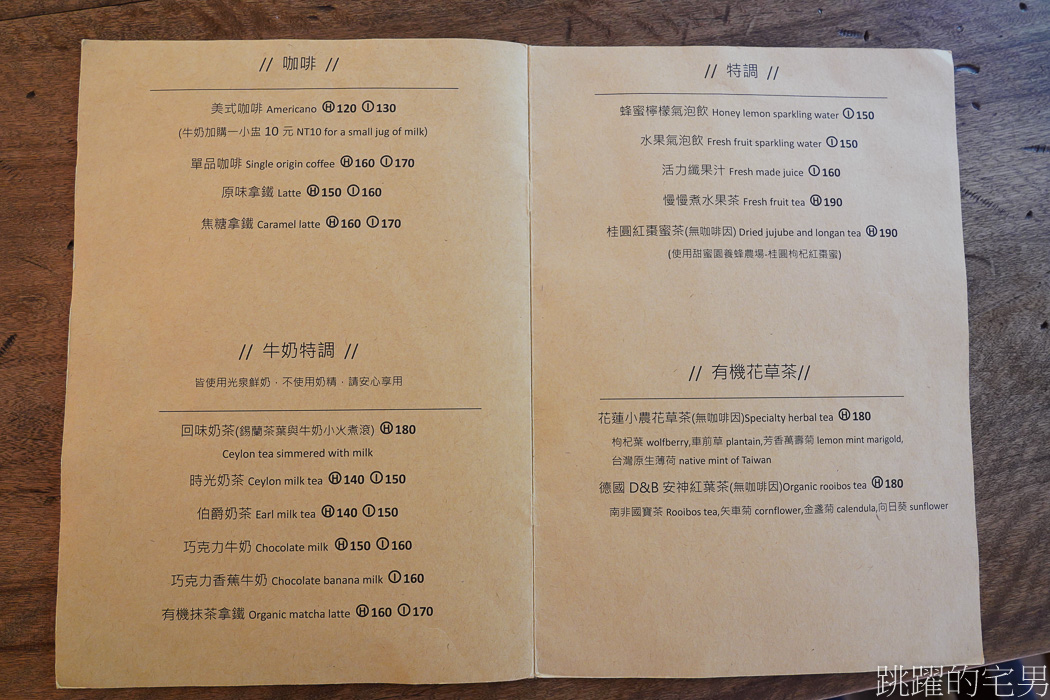 // 咖啡 //
美式咖啡 Americano Ⓗ120 Ⓘ130
(牛奶加購一小盅 10 元 NT10 for a small jug of milk)
單品咖啡 Single origin coffee Ⓗ160 Ⓘ170
原味拿鐵 Latte Ⓗ150 Ⓘ160
焦糖拿鐵 Caramel latte Ⓗ160 Ⓘ170
// 牛奶特調 //
皆使用光泉鮮奶，不使用奶精，請安心享用
回味奶茶(錫蘭茶葉與牛奶小火煮滾) Ⓗ180
Ceylon tea simmered with milk
時光奶茶 Ceylon milk tea Ⓗ140 Ⓘ150
伯爵奶茶 Earl milk tea Ⓗ140 Ⓘ150
巧克力牛奶 Chocolate milk Ⓗ150 Ⓘ160
巧克力香蕉牛奶 Chocolate banana milk Ⓘ160
有機抹茶拿鐵 Organic matcha latte Ⓗ160 Ⓘ170
// 特調 //
蜂蜜檸檬氣泡飲 Honey lemon sparkling water Ⓘ150
水果氣泡飲 Fresh fruit sparkling water Ⓘ150
活力纖果汁 Fresh made juice Ⓘ160
慢慢煮水果茶 Fresh fruit tea Ⓗ190
桂圓紅棗蜜茶(無咖啡因) Dried jujube and longan tea Ⓗ190
(使用甜蜜園養蜂農場-桂圓枸杞紅棗蜜)
// 有機花草茶//
花蓮小農花草茶(無咖啡因)Specialty herbal tea Ⓗ180
枸杞葉 wolfberry,車前草 plantain,芳香萬壽菊 lemon mint marigold,
台灣原生薄荷 native mint of Taiwan
德國 D&B 安神紅葉茶(無咖啡因)Organic rooibos tea Ⓗ180
南非國寶茶 Rooibos tea,矢車菊 cornflower,金盞菊 calendula,向日葵 sunflower
跳躍的宅男